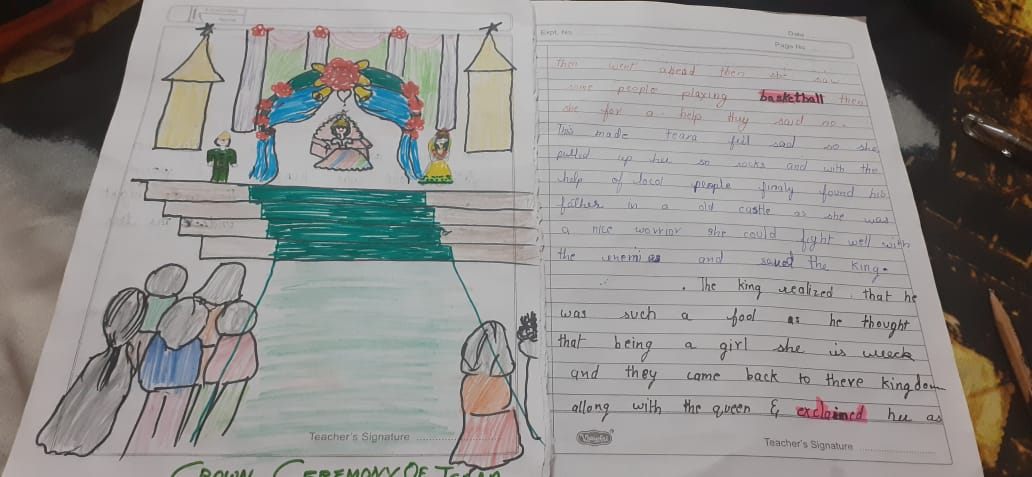 Teacher's Signature
CROWN CEREMONY OF
Expt. No.
Date
Page No.
then went ahead then she saw
some people playing basketball then
she for a help they said no.
This made teara fill sad so she
pulled up her so socks and with the
help of local people finaly found his
father in a old castle as she was
a nice worrior she could fight well with
the enemies and saved the king.
. The king realized that he
was such a fool as he thought
that being a girl she is week
and they came back to there kingdom
allong with the queen & exclaimed her as
Teacher's Signature